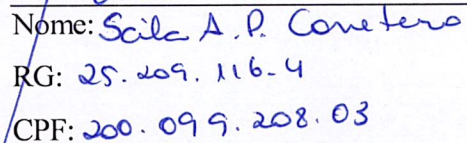 Nome: Scila A. P. Carretero
RG: 25.209.116-4
CPF: 200.099.208.03